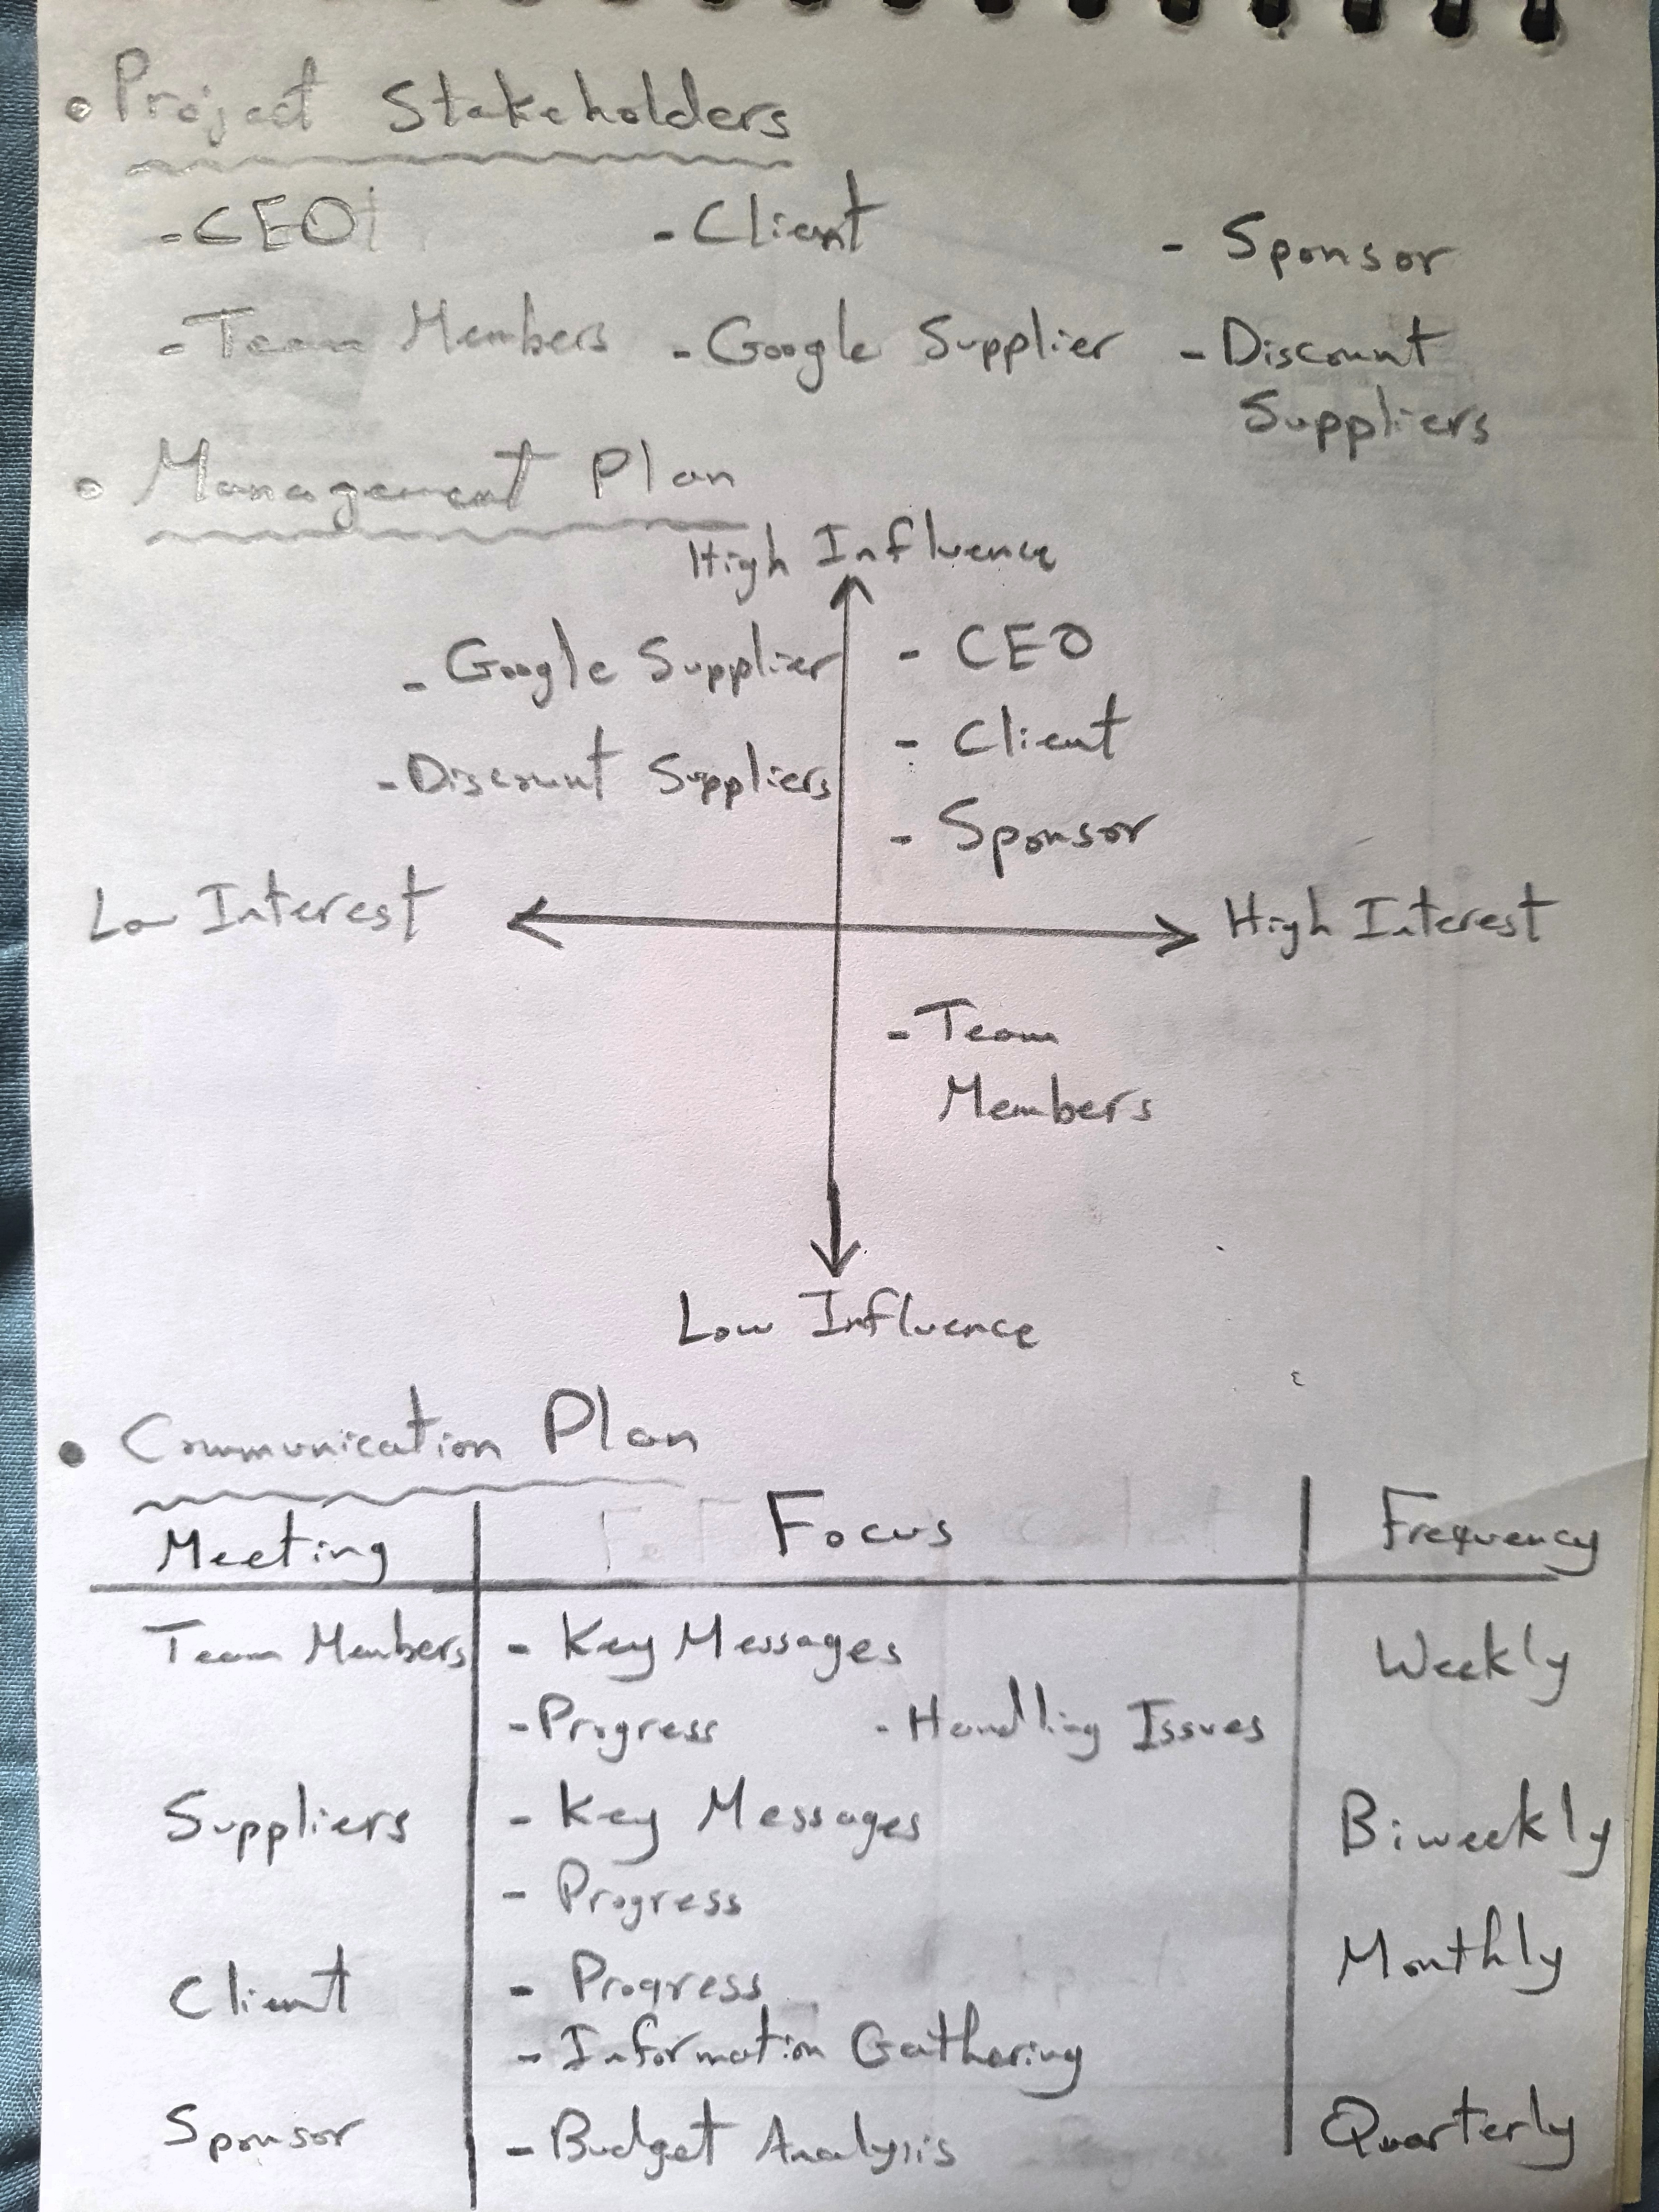 Project Stakeholders
- CEO - Client - Sponsor
- Team Members - Google Supplier - Discount
Suppliers
Management Plan
High Influence
- Google Supplier - CEO
- Discount Suppliers - Client
- Sponsor
Low Interest High Interest
- Team
Members
Low Influence
Communication Plan
Meeting Focus Frequency
Team Members - Key Messages Weekly
- Progress - Handling Issues
Suppliers - Key Messages Biweekly
- Progress
Client - Progress Monthly
- Information Gathering
Sponsor - Budget Analysis Quarterly